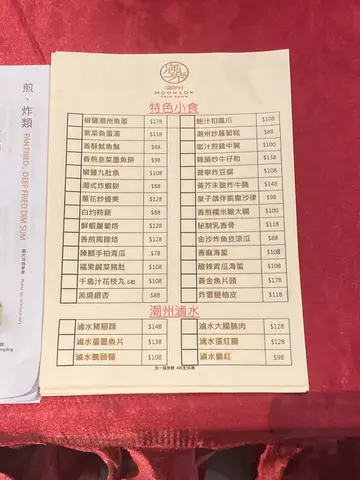 煎、炸類
PAN FRIED、DEEP FRIED DIM SUM
HOON LOK
特色小食
椒鹽潮州魚蛋 $178
紫菜魚蛋湯 $118
香酥魷魚鬚 $88
香煎韭菜墨魚餅 $98
椒鹽九肚魚 $108
潮式炸蝦餅 $88
蔥花炒蠔爽 $128
白灼時蔬 $88
鮮蝦蘿蔔烙 $128
香煎馬蹄烙 $128
陳醋手拍青瓜 $78
福果鹹菜豬肚 $108
千島汁花枝丸 6粒 $108
羔燒銀杏 $88
鮑汁扣鳳爪 $108
潮州炒蘿蔔糕 $88
蜜汁煎雞中翼 $100
韓菌炒牛仔粒 $158
普寧炸豆腐 $108
黃芥末脆炸牛腩 $148
皇子鴿伴凱撒沙律 $98
香煎糯米釀大腸 $100
秘制乳香骨 $118
金沙炸魚皮涼瓜 $88
香麻海蜇 $108
酸辣青瓜海蜇 $108
黃金魚片頭 $178
炸雲腿柚皮 $118
潮州滷水
滷水豬腳蹄 $148
滷水墨魚片 $138
滷水鵝頭頸 $108
滷水大腸腩肉 $128
滷水蛋紅腸 $128
滷水鵝紅 $98